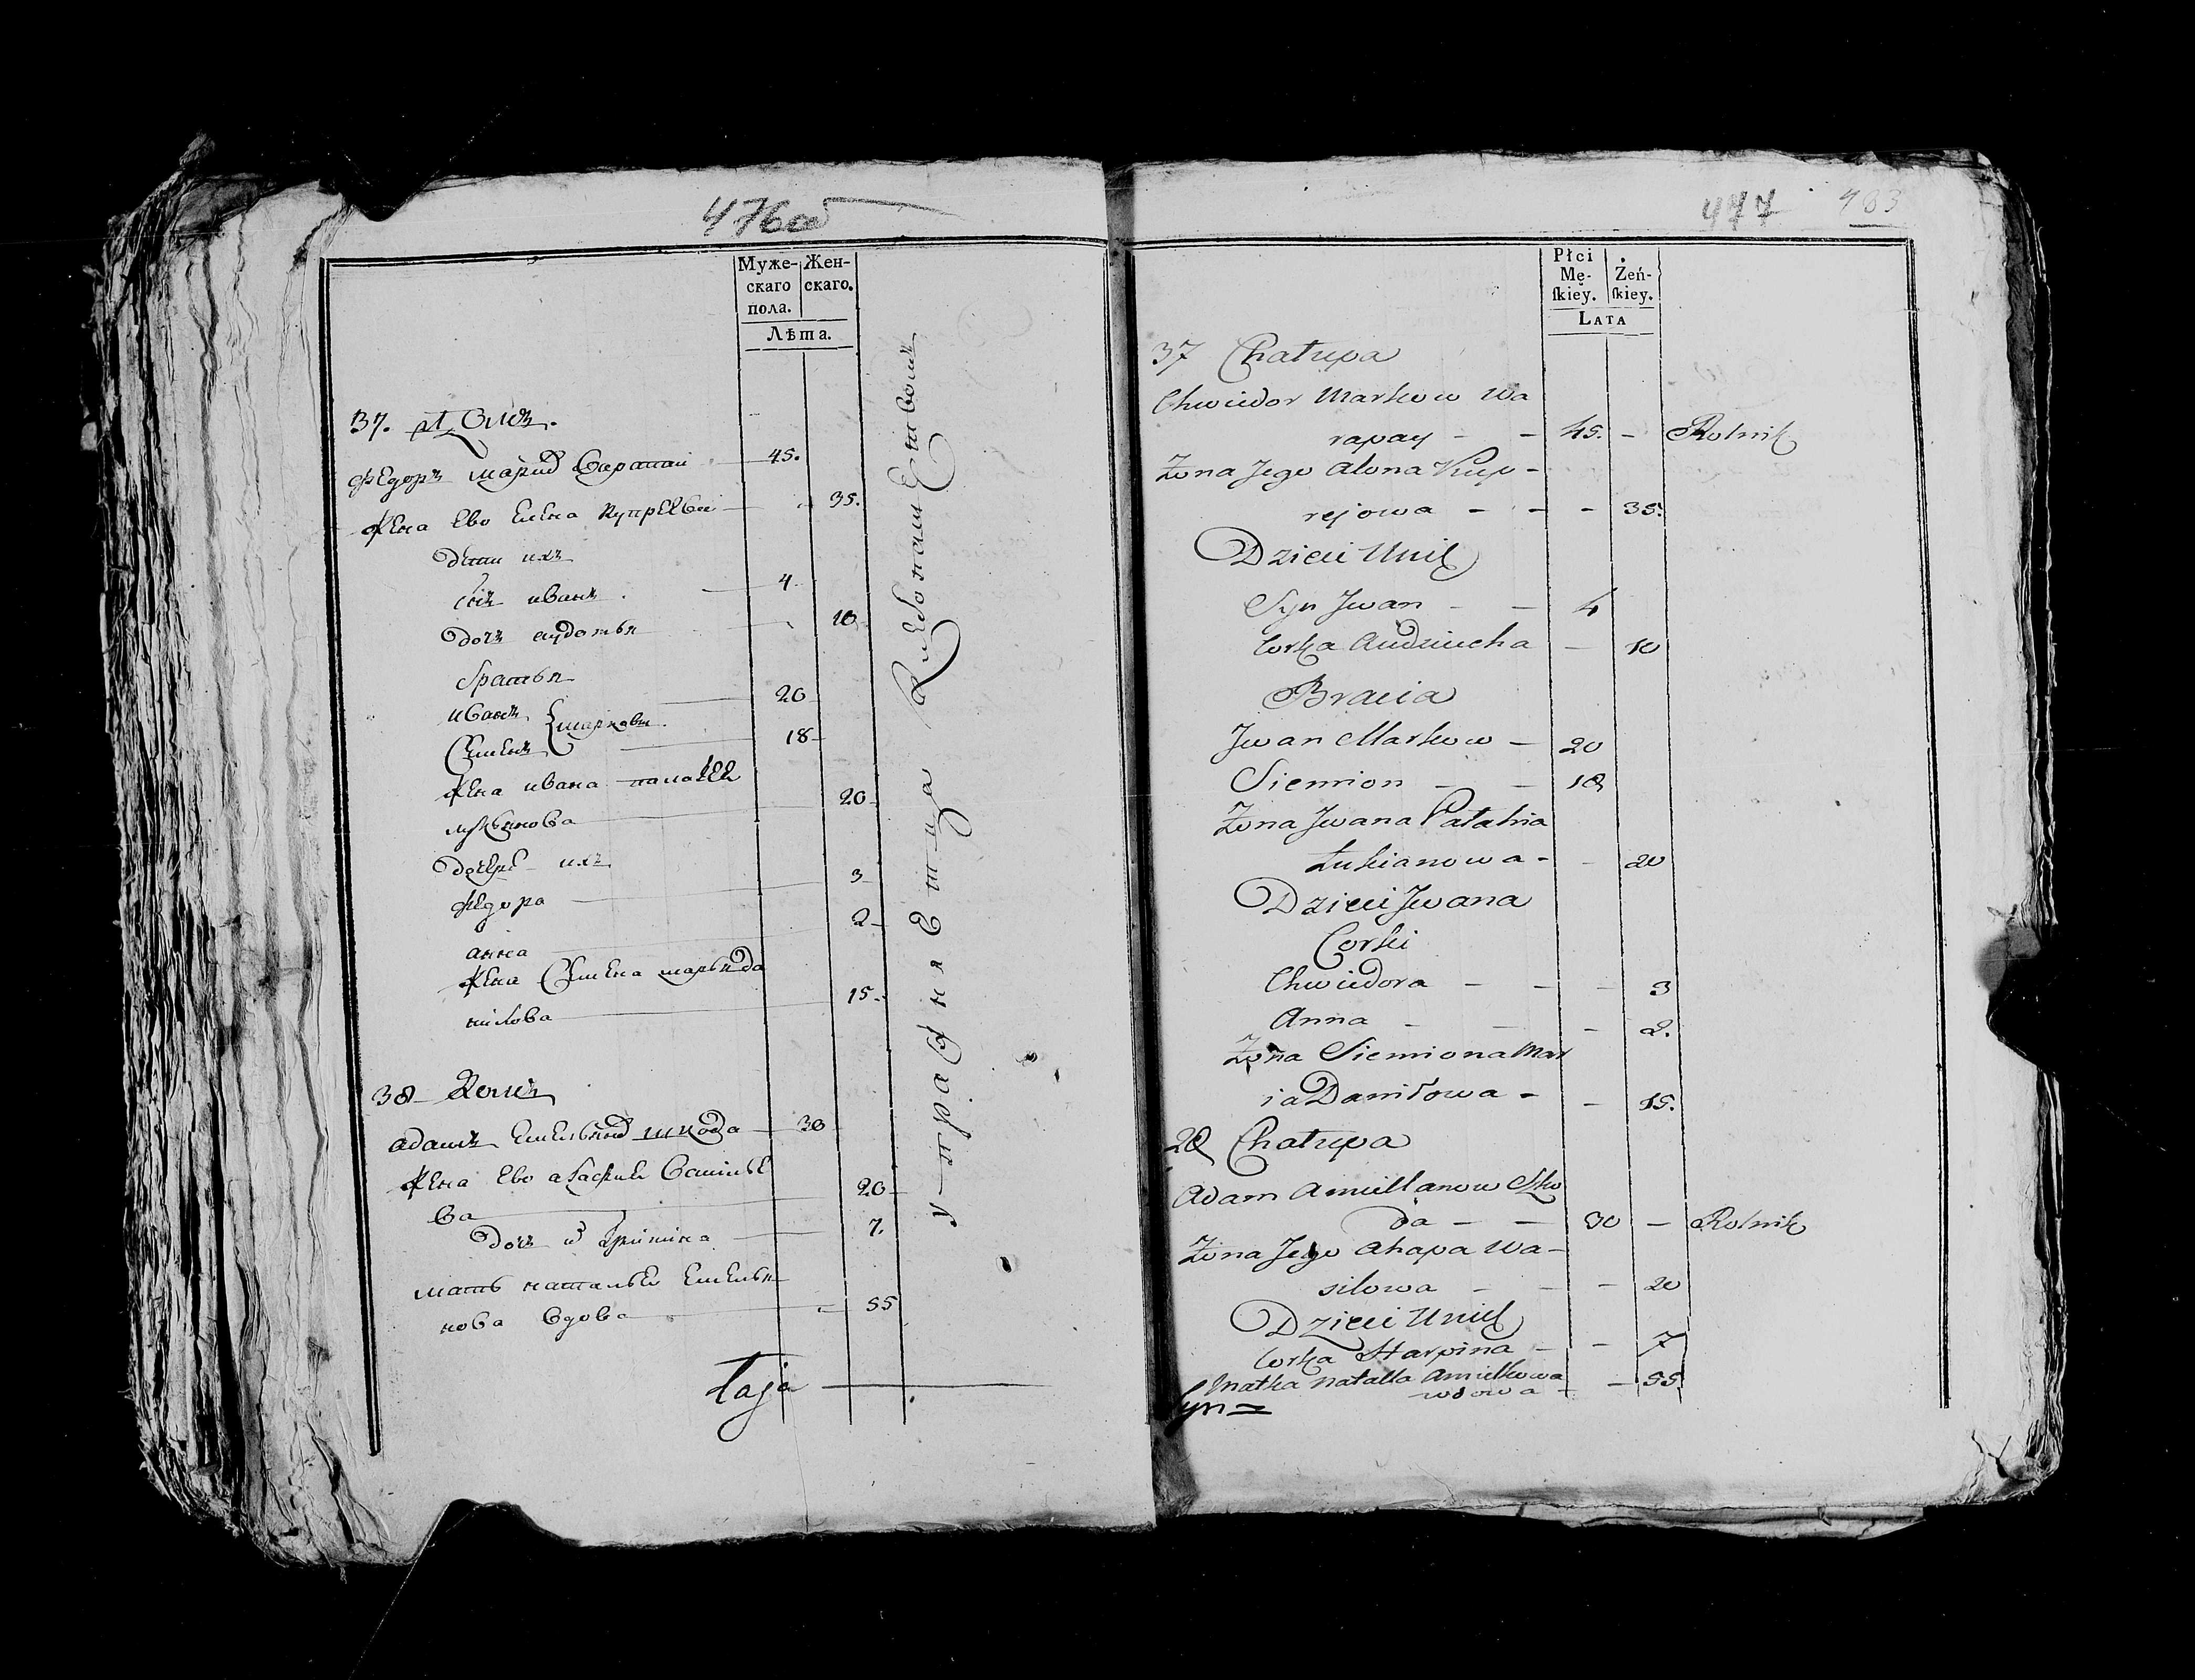 476об
Муже-
скаго
пола.
Жен-
скаго.
Лѣта.
37. Домъ.
Федоръ Марковъ Варапай 45.
жена Ево Елена Купреева 35.
дети ихъ
сынъ иванъ 4
дочь аудотья 10
братья
иванъ 20
Семенъ } марковы 18
жена ивана палагея
лукьянова 20
дочери ихъ
Федора 3
анна 2
жена Семена марья да
нилова 15
38 Домъ
адамъ Емельяновъ шкода 30
жена Ево агафия Василье
ва 20
дочь 7.
мать наталья Емелья
нова вдова 55
Łaja
упражняетца хлебопашеством
477
483
Płci
Mę-
ſkiey.
Żeń-
ſkiey.
LATA
37 Chałupa
Chwiedor Markow Wa
rapay - - 45. - Rolnik
Żona Jego Alona Kup-
rejowa - - - 35.
Dzieci Unich
Syn Jwan - - 4
Corka Audziucha - 10
Bracia
Jwan Markow - 20
Siemion - - 18
Żona Jwana Pałahia
Łukianowa - - 20
Dzieci Jwana
Corki
Chwiedora - - - 3
Anna - - - 2.
Żona Siemiona Mar
ia Daniłowa - - 15.
28 Chałupa
Adam Amiellanow Szko
da - - 30 - Rolnik
Żona Jego Ahapa Wa-
silowa - - - 20
Dzieci Unich
Corka Harpina - - 7
Matka Natalla Amielkowa
wdowa - - 55.